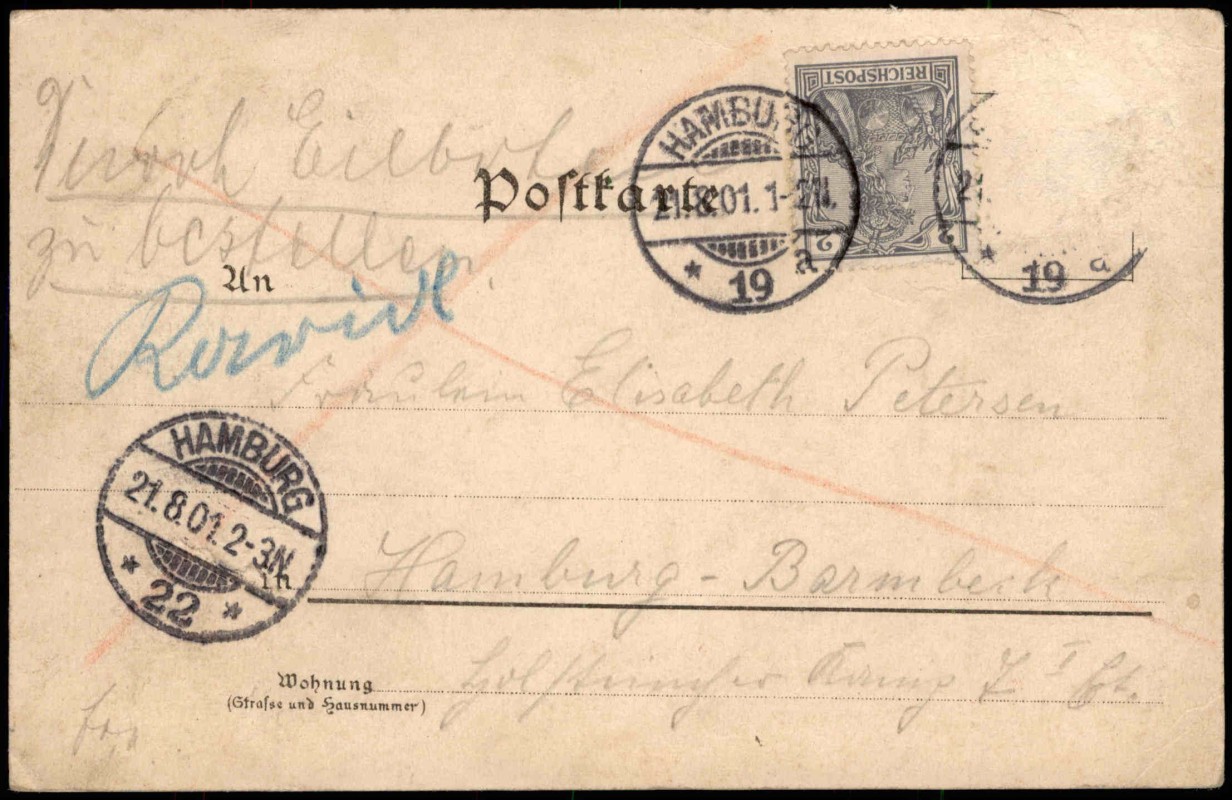 Durch Eilboten
zu bestellen.
Postkarte
An
REICHSPOST
2
2
HAMBURG
21.8.01.1-2N.
* 19 a
* 19 a
Fräulein Elisabeth Petersen
HAMBURG
21.8.01.2-3N.
* 22 *
in Hamburg-Barmbeck
Wohnung Holsteinischer Kamp 7 I Et.
(Strasse und Hausnummer)